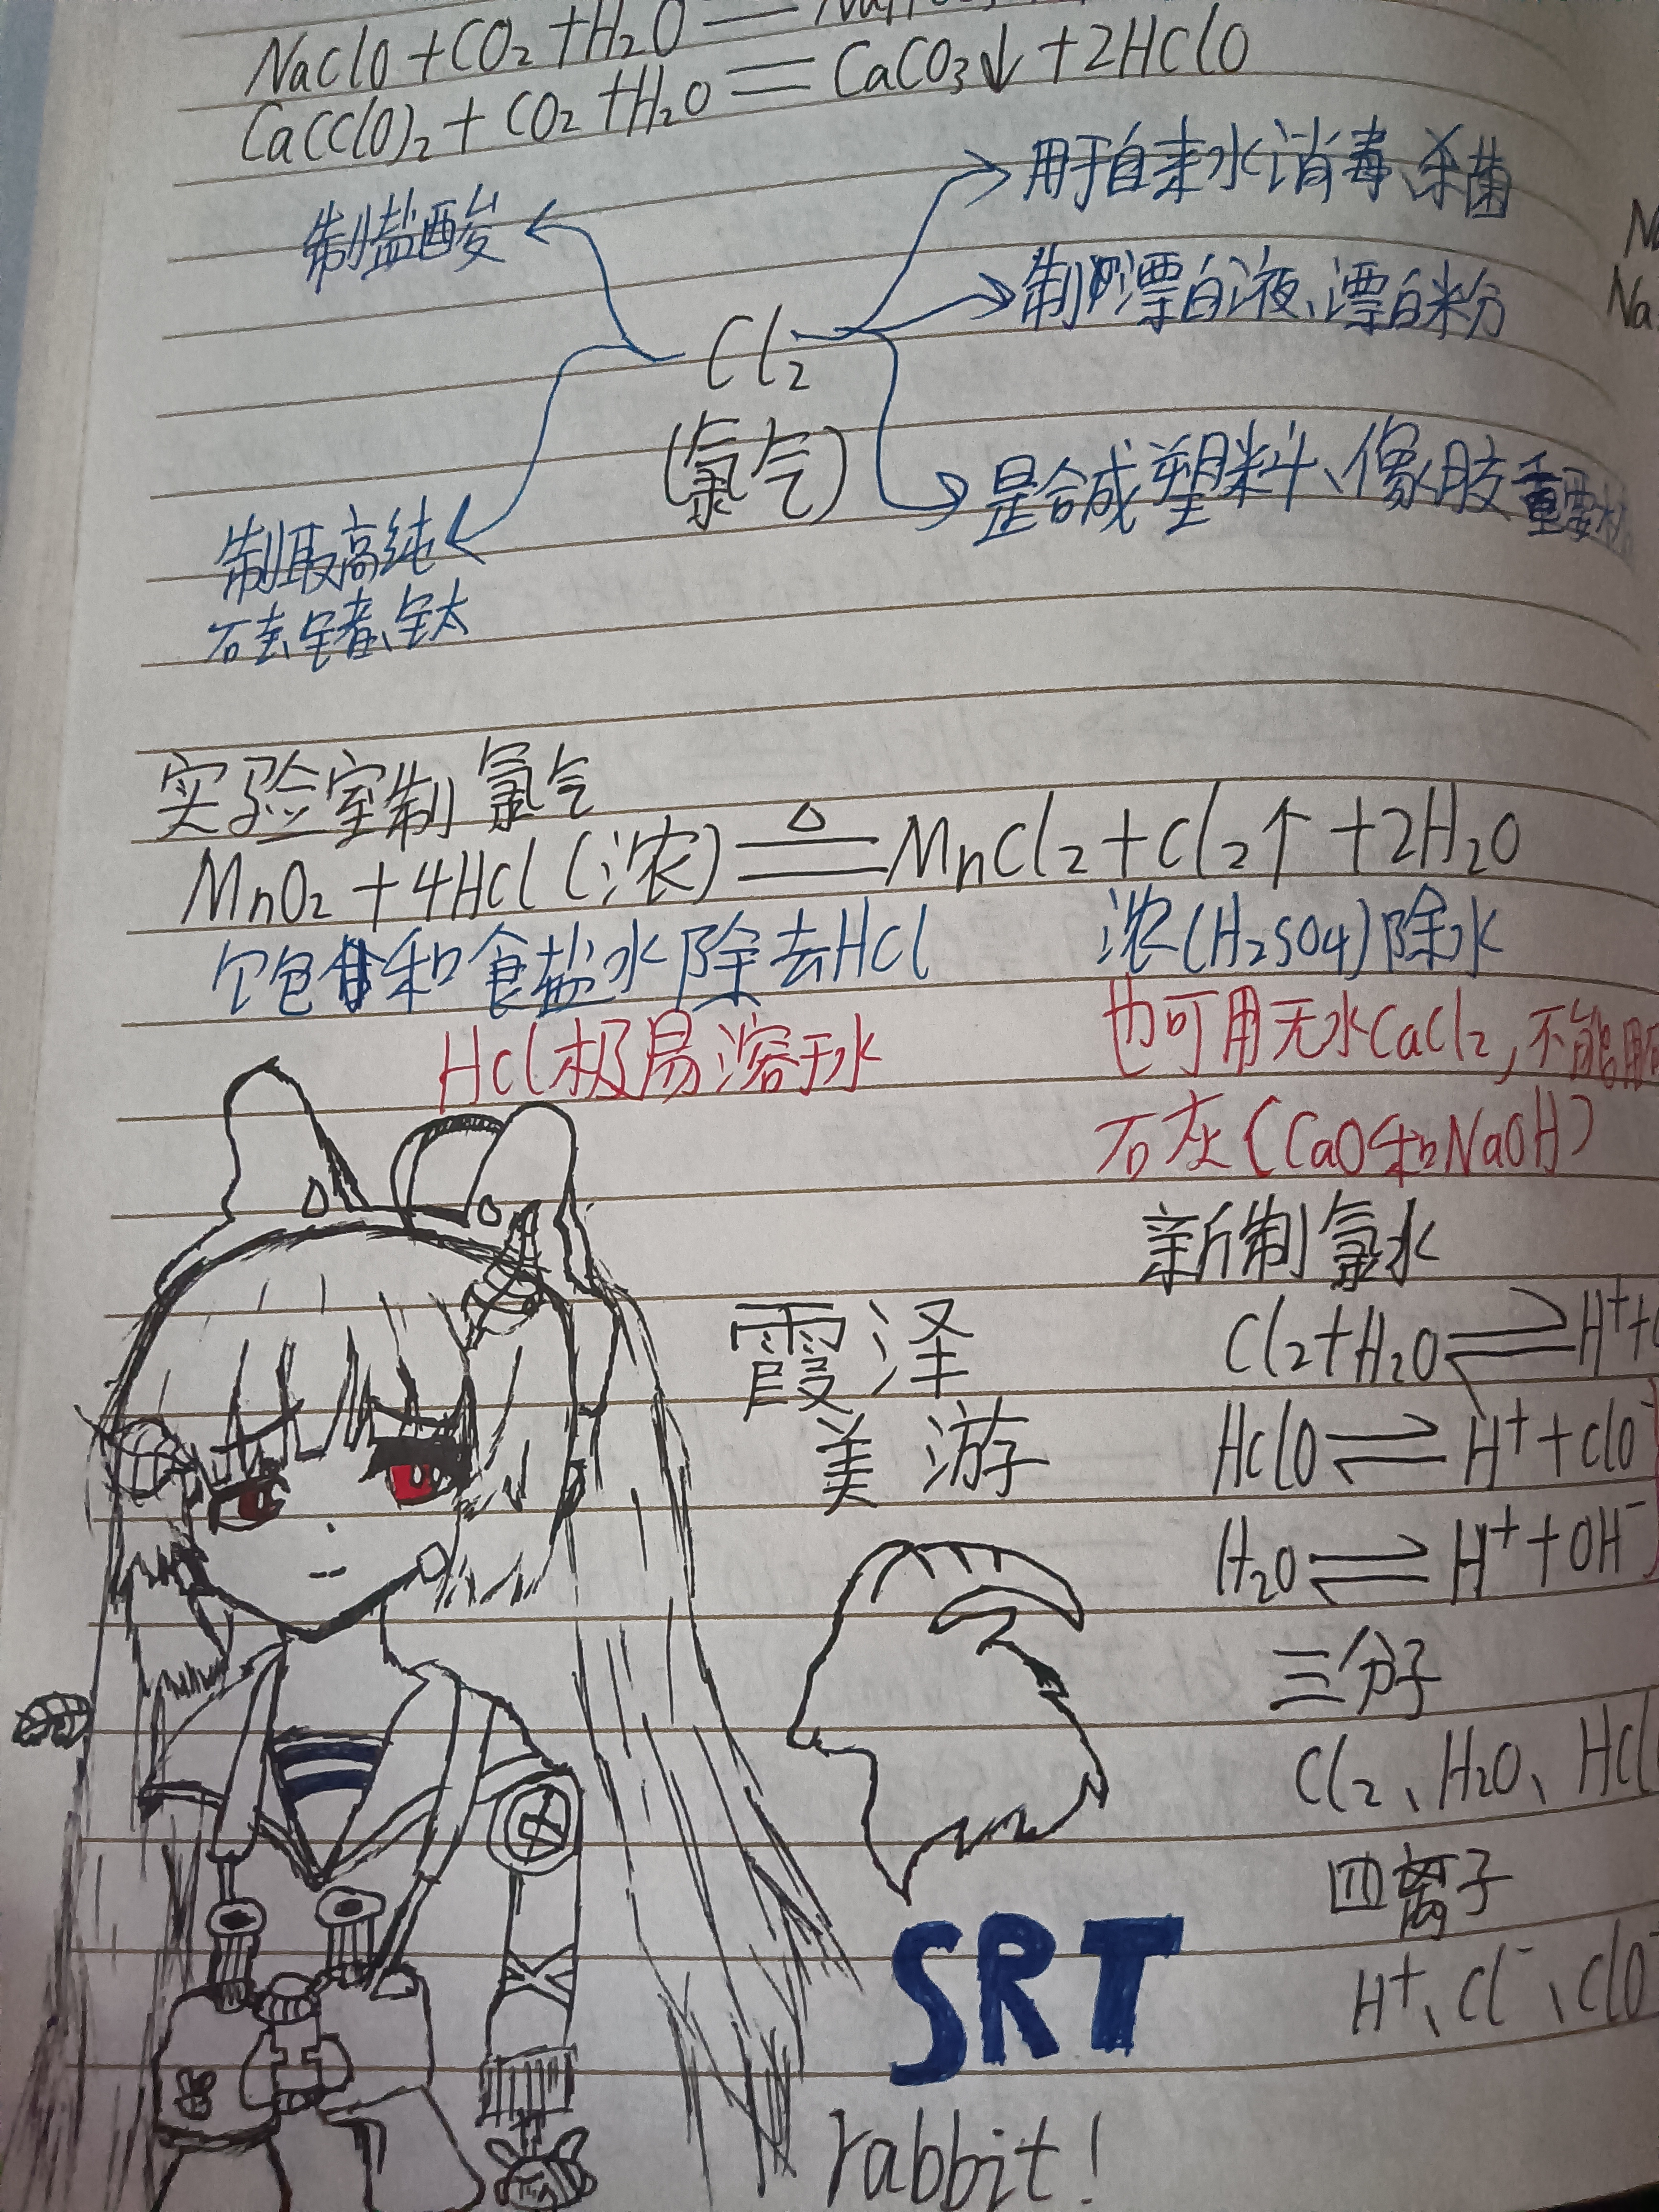 NaClO+CO₂+H₂O=
Ca(ClO)₂+CO₂+H₂O=CaCO₃↓+2HClO
用于自来水消毒、杀菌
制盐酸
制漂白液、漂白粉
Cl₂
(氯气)
是合成塑料、像胶重要
制取高纯
硅、锗、钛
实验室制氯气
MnO₂+4HCl(浓)≜MnCl₂+Cl₂↑+2H₂O
饱和食盐水除去HCl
浓(H₂SO₄)除水
HCl极易溶于水
也可用无水CaCl₂,不能用
石灰(CaO和NaOH)
新制氯水
Cl₂+H₂O⇌H⁺+
HClO⇌H⁺+ClO⁻
H₂O⇌H⁺+OH⁻
三分子
Cl₂、H₂O、HCl
四离子
H⁺、Cl⁻、ClO⁻
霞泽
美游
SRT
rabbit!
Na